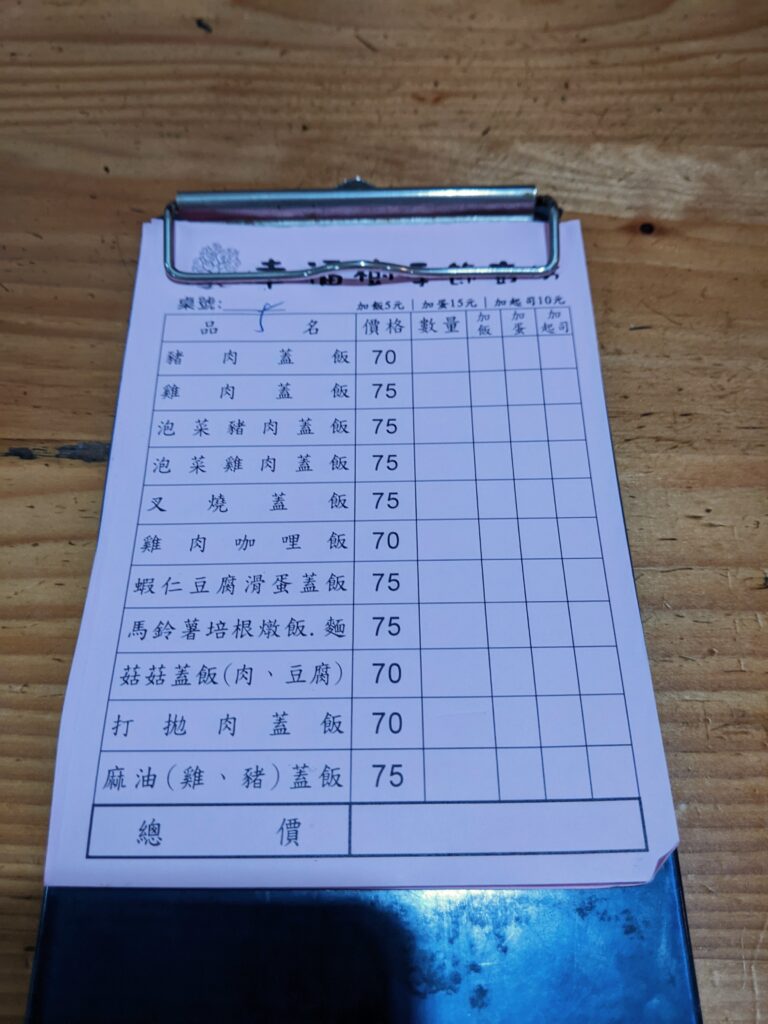 幸福樹
桌號: 加飯5元 | 加蛋15元 | 加起司10元
品名 價格 數量 加飯 加蛋 加起司
豬肉蓋飯 70
雞肉蓋飯 75
泡菜豬肉蓋飯 75
泡菜雞肉蓋飯 75
叉燒蓋飯 75
雞肉咖哩飯 70
蝦仁豆腐滑蛋蓋飯 75
馬鈴薯培根燉飯.麵 75
菇菇蓋飯(肉、豆腐) 70
打拋肉蓋飯 70
麻油(雞、豬)蓋飯 75
總價